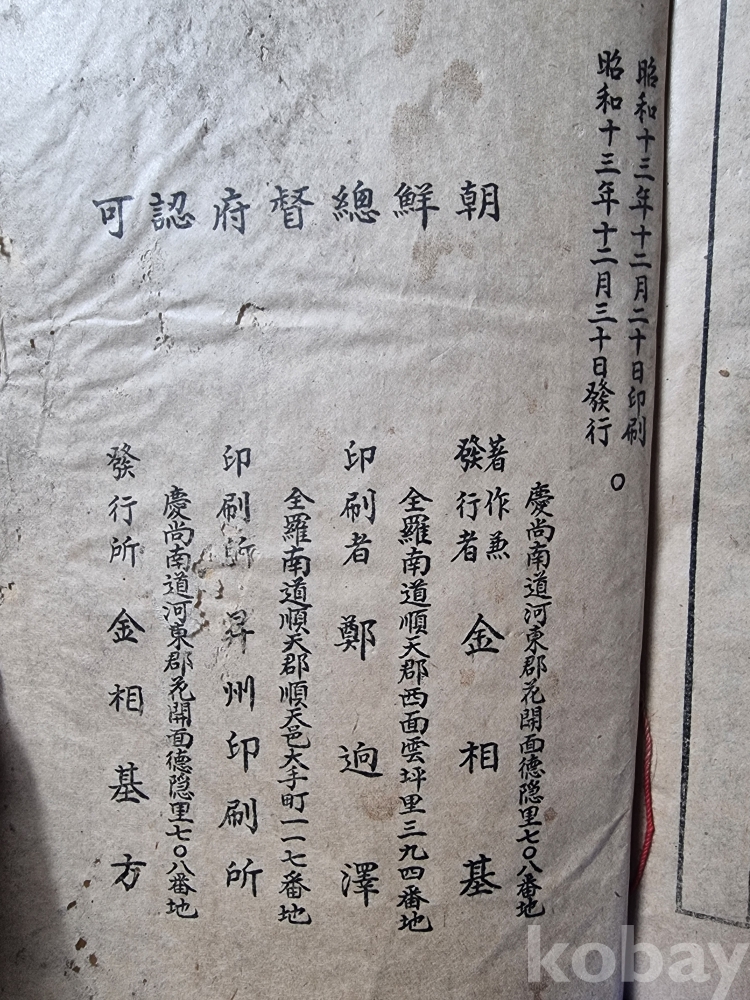 昭和十三年十二月二十日印刷
昭和十三年十二月三十日發行
○
朝鮮總督府認可
慶尚南道河東郡花開面德隱里七〇八番地
著作兼
發行者 金相基
全羅南道順天郡西面雲坪里三九四番地
印刷者 鄭逈澤
全羅南道順天郡順天邑大手町一一七番地
印刷所 昇州印刷所
慶尚南道河東郡花開面德隱里七〇八番地
發行所 金相基方
kobay